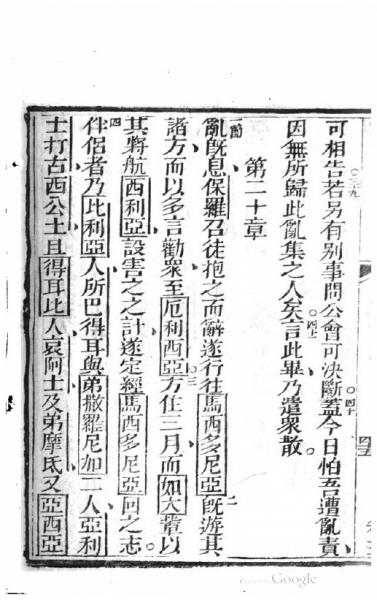 可相告若另有别事問公會可決斷蓋今日怕吾遭亂責
〇三九
〇四十
因無所歸此亂集之人矣言此畢乃遣衆散。
〇四十一
第二十章
一節
亂既息保羅召徒抱之而辭遂行往馬西多尼亞既遊其
二
諸方而以多言勸衆至厄利西亞方住三月而如大輩以
〇三
其將航西利亞設害之之計遂定經馬西多尼亞回之志。
四
伴侶者乃比利亞人所巴得耳與弟撒羅尼加二人亞利
士打古西公土且得耳比人哀阿士及弟摩氐又亞西亞
Google